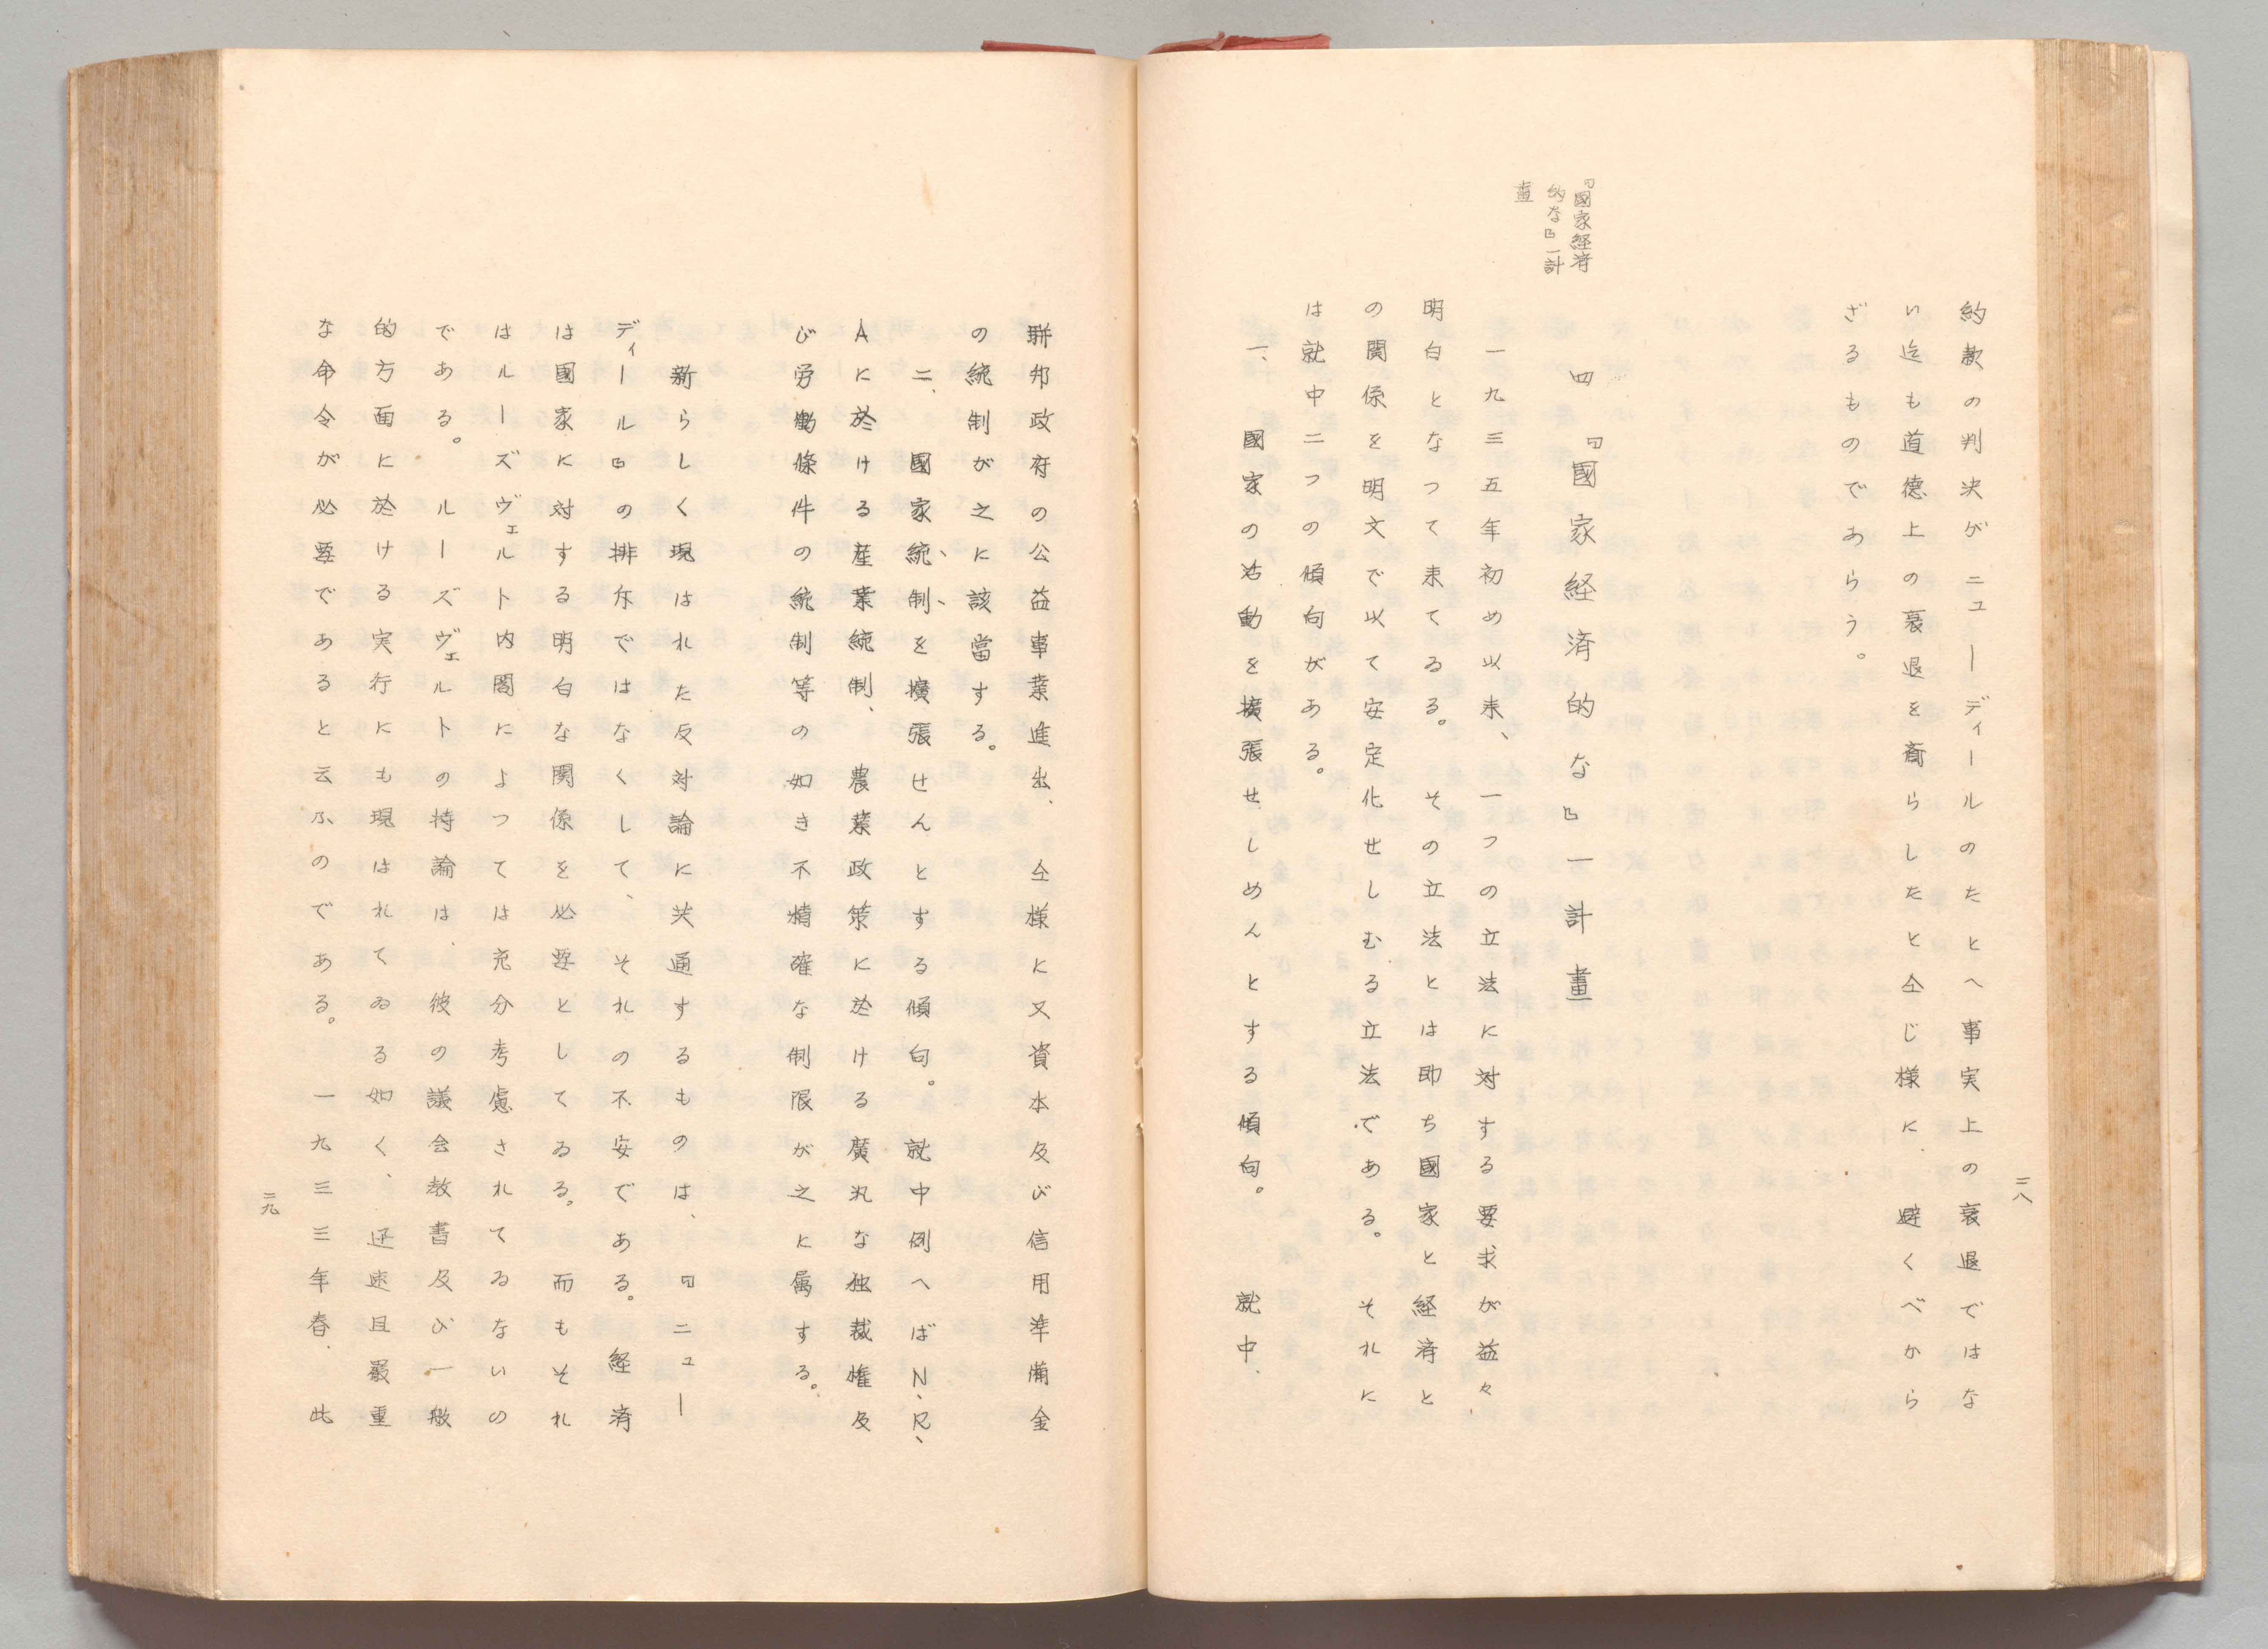 二八
『國家経済
的な』一計
畫
約款の判決がニューディールのたとへ事実上の衰退ではな
い迄も道徳上の衰退を齎らしたと仝じ様に、避くべから
ざるものであらう。
四 『國家経済的な』一計畫
一九三五年初め以来、一つの立法に対する要求が益々、
明白となつて来てゐる。その立法とは即ち國家と経済と
の関係を明文で以て安定化せしむる立法である。それに
は就中二つの傾向がある。
一、國家の活動を擴張せしめんとする傾向。就中、
聯邦政府の公益事業進出、仝様に又資本及び信用準備金
の統制が之に該當する。
二、國家統制を擴張せんとする傾向。就中例へばN、R、
Aに於ける産業統制、農業政策に於ける廣汎な独裁権及
び労働條件の統制等の如き不精確な制限が之に属する。
新らしく現はれた反対論に共通するものは、『ニュー
ディール』の排斥ではなくして、それの不安である。経済
は國家に対する明白な関係を必要としてゐる。而もそれ
はルーズヴェルト内閣によつては充分考慮されてゐないの
である。ルーズヴェルトの持論は、彼の議会教書及び一般
的方面に於ける実行にも現はれてゐる如く、迅速且嚴重
な命令が必要であると云ふのである。一九三三年春、此
二九